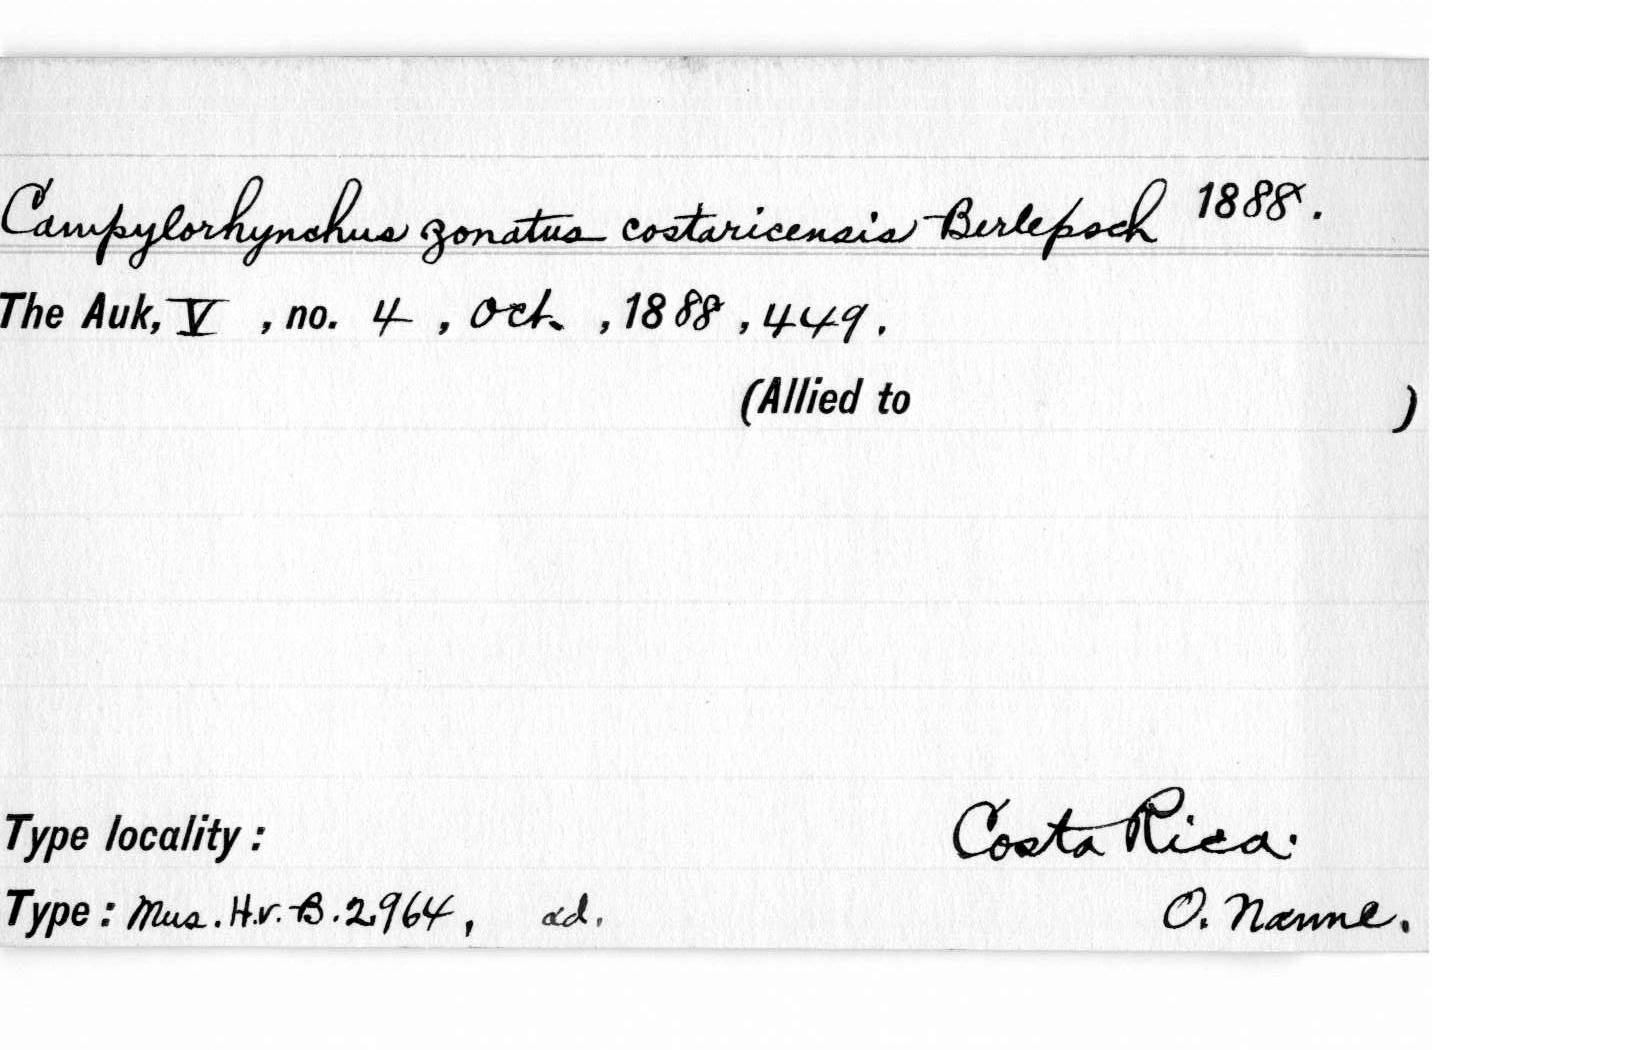 Campylorhynchus zonatus costaricensis Berlepsch 1888.
The Auk, V , no. 4 , Oct. , 1888 , 449 .
(Allied to )
Type locality : Costa Rica.
Type : Mus. H.v.B. 2964 , ad. O. Nanne.